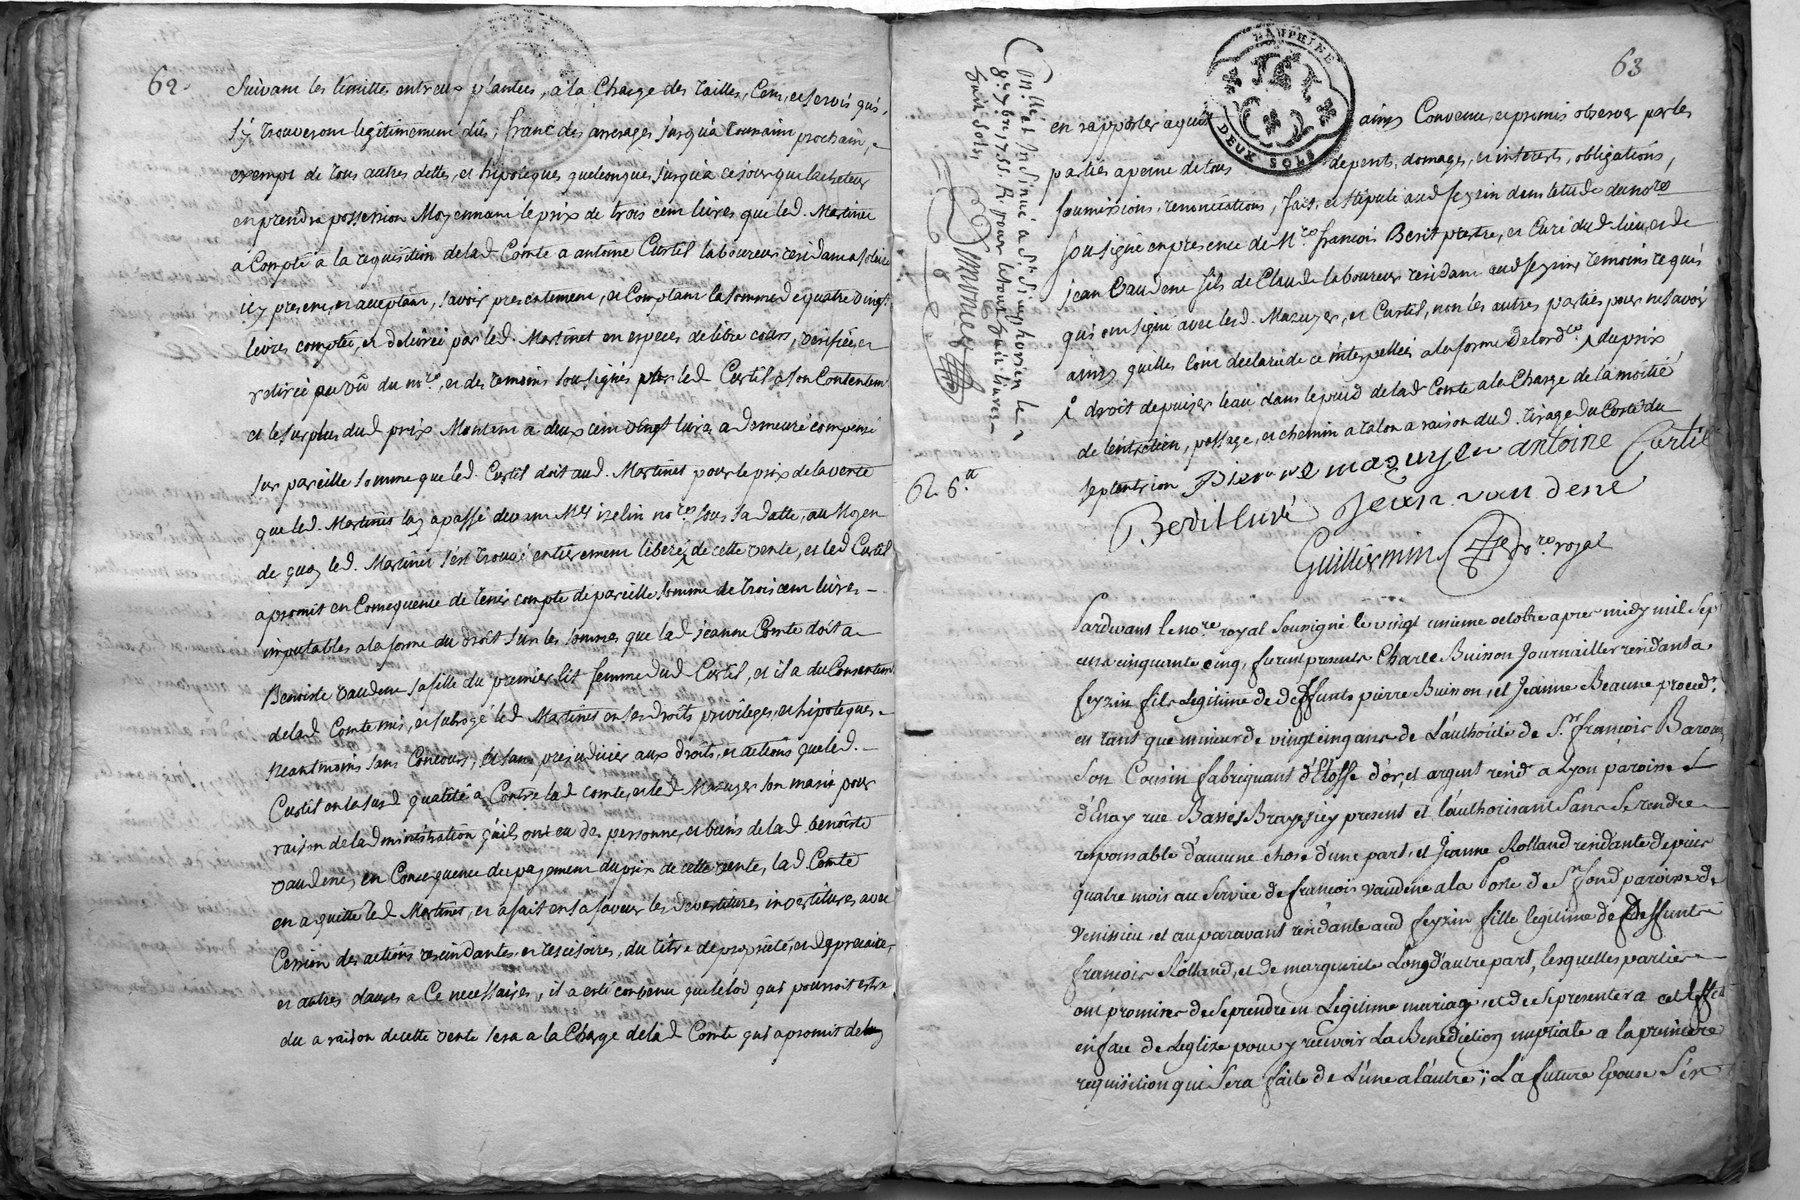 62.
Suivant les limittes entreux plantées, a la Charge des tailles, Cens, et servis qui
s'y trouveront legitimement dûs, franc des arrerages jusqu'a toussaint prochain, et
exempt de tous autres dettes, et hipoteques quelconques jusqu'a ce jour que lacheteur
en prendra possession Moyennant le prix de trois cent livres que led. Martinet
a Compté a la requisition de lad Comte a antoine Curtil laboureur residant a
icy present, et acceptant, savoir presentement, et Comptant la somme de quatre vingt
livres comptée, et delivrée par led. Martinet en especes de libre cours, verifiée et
retirée au vû du nore, et des temoins soussignés par led Curtil a son Contentement
et le surplus dud prix Montant a deux cent vingt livres a demeuré compensé
sur pareille somme que led Curtil doit aud. Martinet pour le prix de la vente
que led. Martinet luy a passé devant Me izelin nore sous sa datte, au Moyen
de quoy led. Martinet s'est trouvé entierement liberé de cette vente, et led Curtil
a promit en Consequence de tenir compte de pareille somme de trois cent livres
imputables a la forme du droit sur les sommes que lad jeanne Comte doit a
Benoiste vaudene sa fille du premier lit femme dud Curtil, et il a du Consentement
de lad Comte mis, et subrogé led Martinet en ses droits privileges, et hipoteques
neantmoins sans Concours, et sans prejudicier aux droits, et actions que led.
Curtil en la susd qualité a Contre lad comte, et led Mazuyer son marit pour
raison de ladministration qu'ils ont eu des personne, et biens de lad benoiste
vaudene, en Consequence du payement du prix de cette vente, lad Comte
en a quitté led Martinet, et a fait en sa faveur les devestitures investitures avec
Cession des actions rescindantes et rescisoires, du titre de proprieté, et de precaire,
et autres clauses a Ce necessaires, il a esté convenu que le lod qui pourroit estre
du a raison de cette vente sera a la Charge de lad Comte qui a promit de luy
63
DAUPHINE
DEUX SOLS
Conllé et Insinué a St Simphorien le
8e 9bre 1755. R. pour le tout
huit sols
en rapporter aquit ainsy Convenu, et promis observer par les
parties a peine de tous depents, domages, et interests, obligations,
soumissions, renonciations, fait, et stipulé aud feyzin dans letude du nore
soussigné en presence de Mre françois Berit prestre, et Curé dud lieu, et de
jean Vaudene fils de Claude laboureur residant aud feyzin temoins requis
qui ont signé avec lesd. Mazuyer, et Curtil, non les autres parties pour ne savoir
ainsy quelles l'ont declaré de ce interpellées a la forme de lordce du prix
droit de puizer leau dans le puid de lad Comte a la Charge de la moitié
de lentretien, passage, et chemin a talon a raison dud. tirage du Costé du
septentrion Pierre mazuyer antoine Curtil
Berit Curé Jean vandene
Guillermin nore royal
62. 6.tt
Pardevant le nore royal Soussigné le vingt unieme octobre apres midy mil Sept
cens cinquante cinq, furent presents Charle Buisson Journaillier residant a
feyzin fils Legitime de deffunts pierre Buisson, et Jeanne Beaune proced.
en tant que mineur de vingt cinq ans de L'authorité de Sr françois Barou
Son Cousin fabriquant d'Etoffe d'or, et argent resid a Lyon paroisse
d'Enay rue icy present et l'authorisant Sans Se rendre
responsable d'aucune chose d'une part, et Jeanne Rolland residante depuis
quatre mois au Service de francois vaudene a la Porte de St fond paroisse de
Venissieu, et auparavant residante aud feyzin, fille legitime de deffunts
francois Rolland, et de marguerite Long d'autre part, lesquelles parties
ont promires de Se prendre en Legitime mariage, et de Se presenter a cet Effet
en face de Leglize pour y recevoir La Benediction nuptiale a la premiere
requisition qui Sera faite de L'une a l'autre; La future Epouse S'est